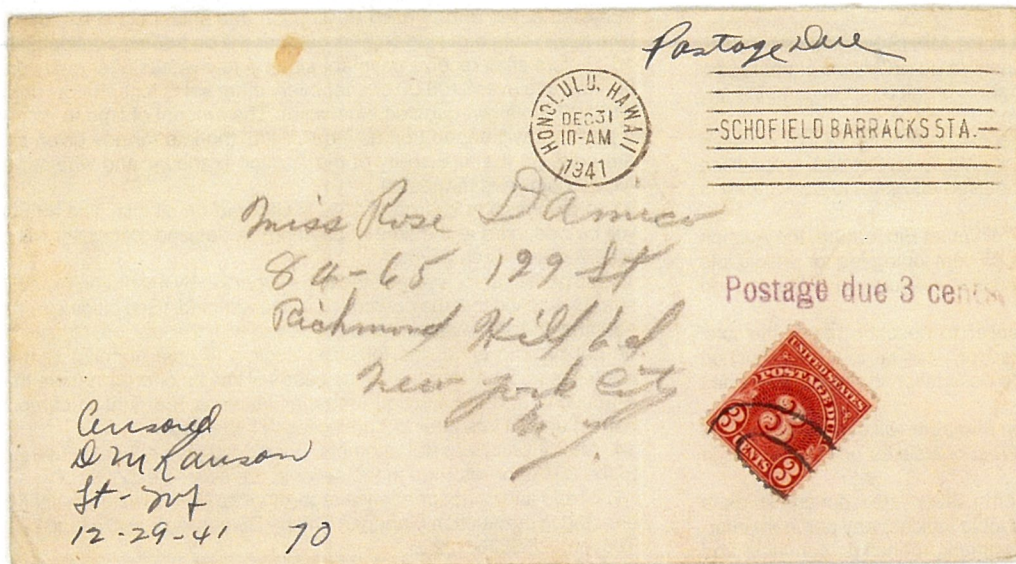 Postage Due
HONOLULU, HAWAII
DEC 31
10-AM
1941
SCHOFIELD BARRACKS STA.
Miss Rose Damico
84-65 129 St
Richmond Hill
New York City
N.Y.
Postage due 3 cents
UNITED STATES
POSTAGE DUE
3
3 CENTS 3
Censored
D M Ranson
Lt-
12-29-41 70